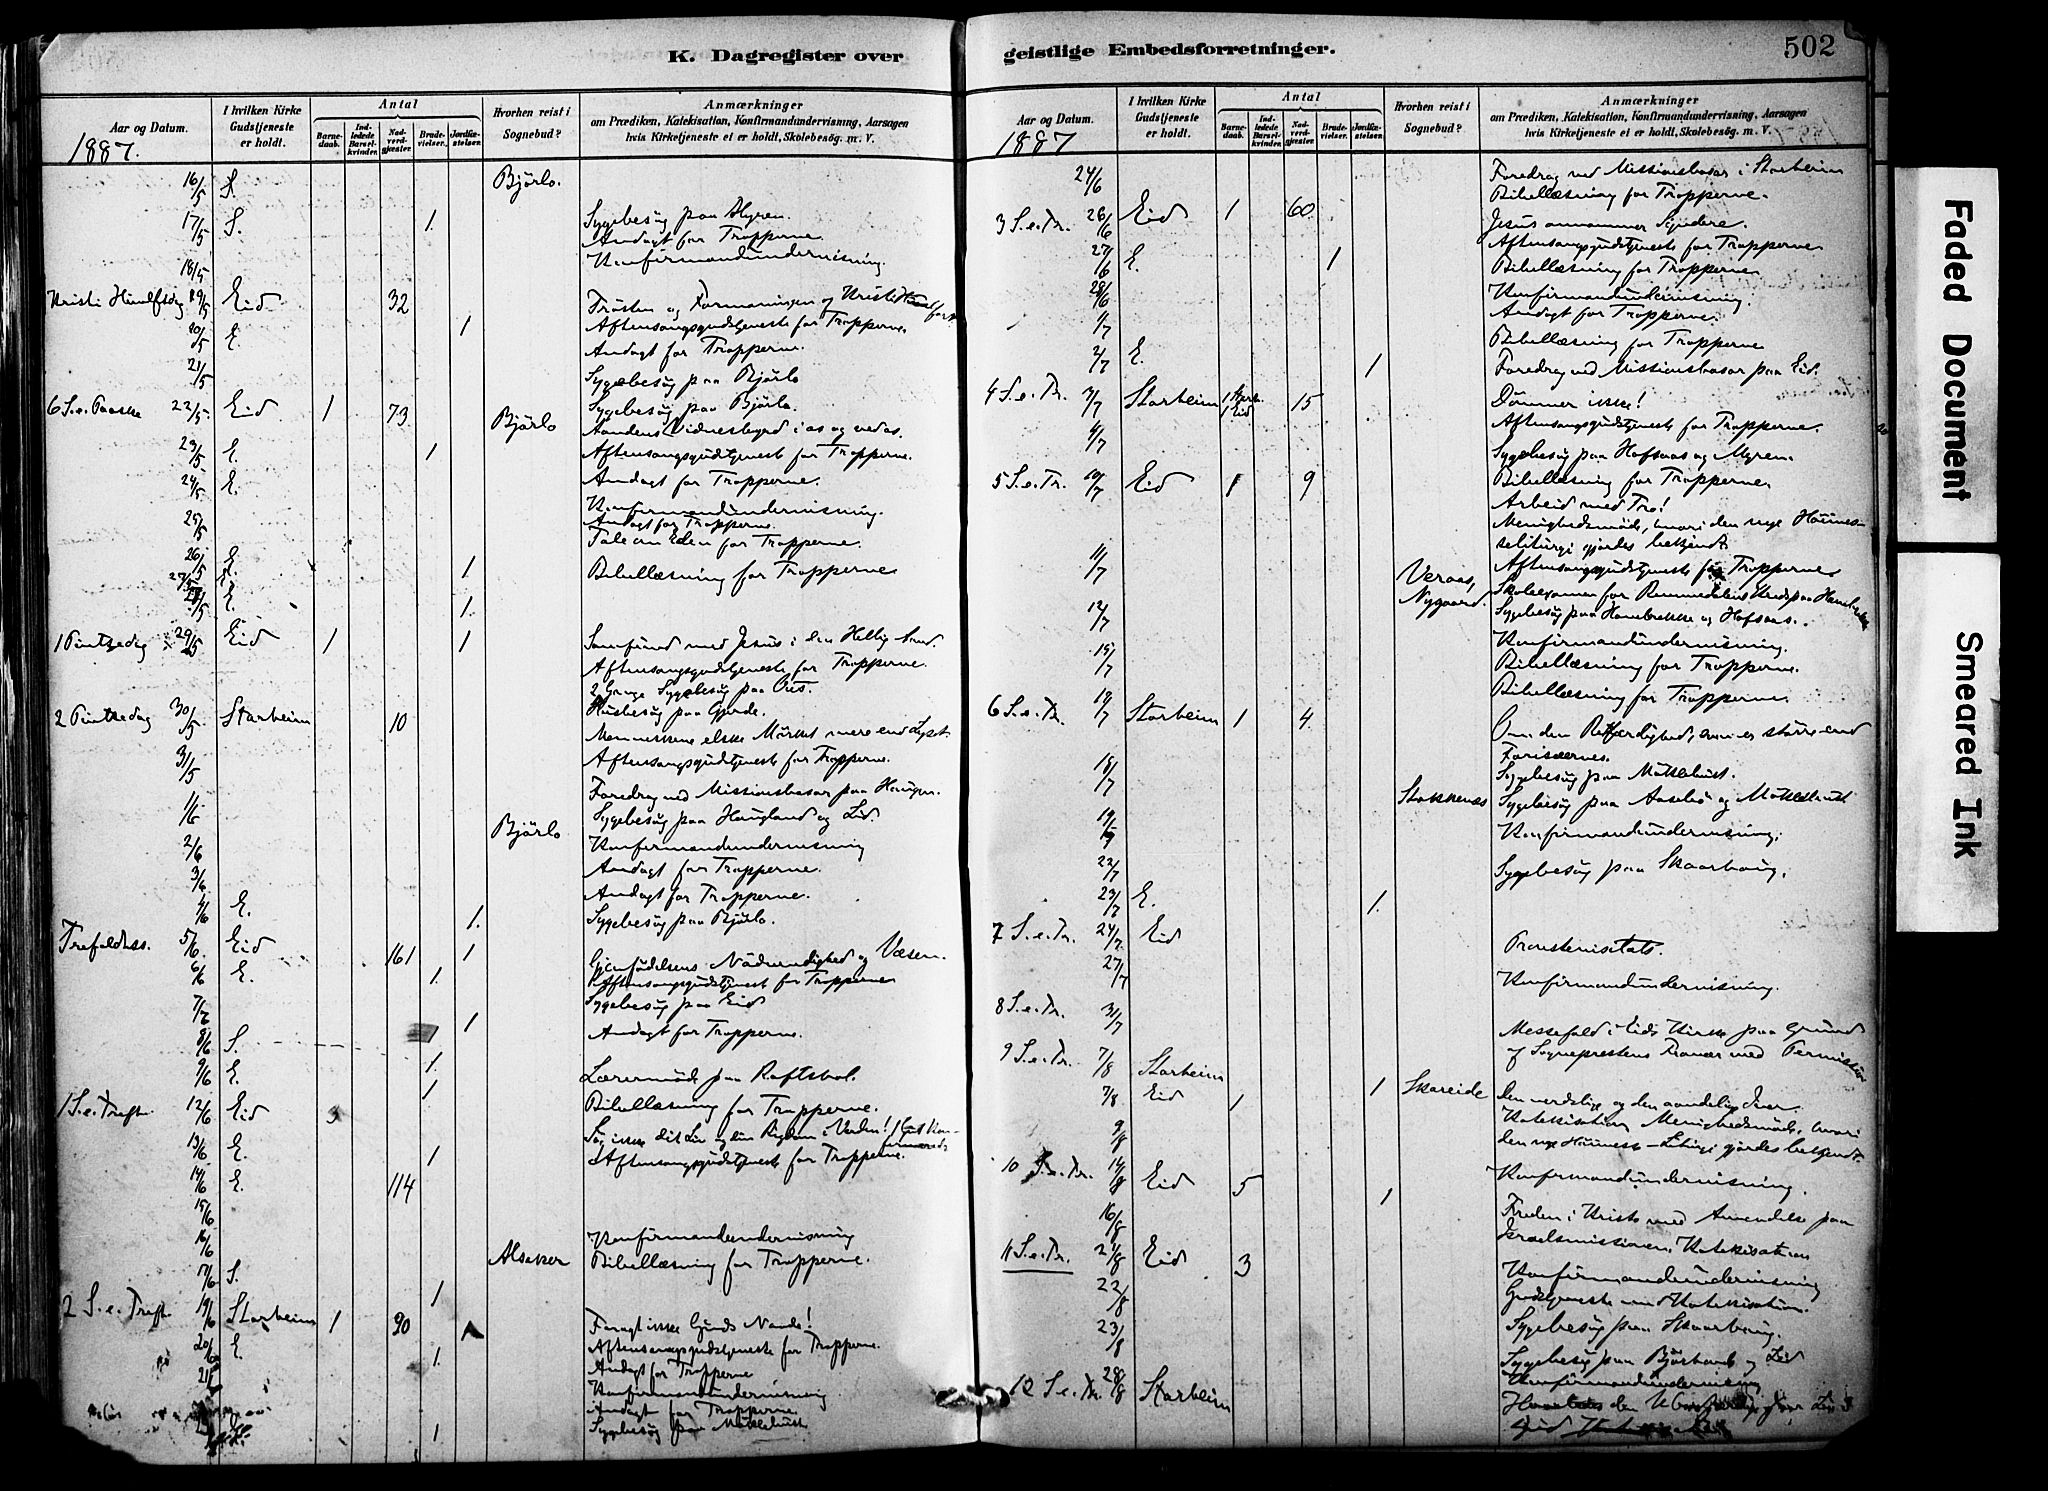 K. Dagregister over geistlige Embedsforretninger.
502
Aar og Datum.
I hvilken Kirke Gudstjeneste er holdt.
Antal
Barnedaab.
Indledede Barselkvinder.
Nadverdgjester.
Brudevielser.
Jordfæstelser.
Hvorhen reist i Sognebud?
Anmærkninger
om Prædiken, Katekisation, Konfirmandundervisning, Aarsagen
hvis Kirketjeneste et er holdt, Skolebesøg. m. V.
1887.
16/5 S. Bjørlo.
17/5 S. 1. Sygebesøg paa Myren.
Andagt for Tropperne.
18/5 Konfirmandundervisning.
Kristi Himlfsdag 19/5 Eid 32
Aftensangsgudstjeneste for Tropperne.
20/5 E. 1 Andagt for Tropperne.
21/5 Sygebesøg paa Bjørlo
Sygebesøg paa Bjørlo.
6 S. e. Paaske 22/5 Eid 1 73 Bjørlo Aandens Vidnesbyrd i os og ved os.
23/5 E. 1 Aftensangsgudstjeneste for Tropperne.
24/5 E. Andagt for Tropperne.
Konfirmandundervisning.
25/5 Andagt for Tropperne.
Tale om Eden for Tropperne.
26/5 E. 1 Bibellæsning for Tropperne
27/5
28/5 E. 1.
1 Pintsedag 29/5 Eid 1 1 Samfund med Jesus i den Hellig Aand.
Aftensangsgudstjeneste for Tropperne.
2 Gange Sygebesøg paa Os.
Husbesøg paa Gjerde.
2 Pintsedag 30/5 Starheim 10 Menneskene elske Mørket mere end Lyset.
Aftensangsgudstjeneste for Tropperne.
31/5 Foredrag ved Missionsbasar paa Haugen.
1/6 Sygebesøg paa Haugland og Lid.
Bjørlo
2/6 Konfirmandundervisning
3/6 Andagt for Tropperne.
Andagt for Tropperne.
4/6 E. 1. Sygebesøg paa Bjørlo.
Trefoldhss. 5/6. Eid 161 1 Gjenfødelsens Nødvendighed og Væsen.
6/6 E. 1. Aftensangsgudstjeneste for Tropperne
Sygebesøg paa Eid
7/6 1 Andagt for Tropperne.
8/6 S. 1.
9/6 E. 1 Lærermøde paa Raftsbol.
Bibellæsning for Tropperne.
1 S. e. Trefh 12/6 Eid 3 Søg ikke dit Liv og din Rigdom i Verden!
13/6 E. 1 Aftensangsgudstjeneste for Tropperne.
14/6 E. 114
15/6
16/6 Konfirmandundervisning
Alsaker Bibellæsning for Tropperne.
17/6 S. 1
2 S. e. Trefh 19/6 Starheim 1 20 Foragt ikke Guds Naade!
20/6 E. 1. Aftensangsgudstjeneste for Tropperne.
21/6 Andagt for Tropperne
Konfirmandundervisning
Andagt for Tropperne
1. Sygebesøg paa Møklebust
Aar og Datum.
I hvilken Kirke Gudstjeneste er holdt.
Antal
Barnedaab.
Indledede Barselkvinder.
Nadverdgjester.
Brudevielser.
Jordfæstelser.
Hvorhen reist i Sognebud?
Anmærkninger
om Prædiken, Katekisation, Konfirmandundervisning, Aarsagen
hvis Kirketjeneste et er holdt, Skolebesøg. m. V.
1887
24/6 Foredrag ved Missionsbasar i Starheim
Bibellæsning for Tropperne.
3 S. e. Tr. 26/6 Eid 1 60 Jesus annammer Syndere.
Aftensangsgudstjeneste for Tropperne
27/6 E. 1 Bibellæsning for Tropperne
28/6 Konfirmandundervisning.
1/7 Andagt for Tropperne.
Bibellæsning for Tropperne
2/7 E. 1 Foredrag ved Missionsbasar paa Eid.
4 S. e. Tr. 3/7 Starheim 1 Eid 15 Dømmer ikke!
Aftensangsgudstjeneste for Tropperne.
4/7 Sygebesøg paa Hofsaas og Myren.
Bibellæsning for Tropperne.
5 S. e. Tr. 10/7 Eid 1 9 Arbeid med Tro!
Menighedsmøde, hvori den nye Høimes-
seliturgi gjordes bekjendt.
Aftensangsgudstjeneste for Tropperne
11/7 Veraas, Nygaard.
Sygebesøg paa Hanebrekke og Hofsaas.
12/7 Konfirmandundervisning.
15/7 Bibellæsning for Tropperne.
Bibellæsning for Tropperne.
6 S. e. Tr. 17/7 Starheim 1 4 Om den Retfærdighed, som er større end
Farisæernes.
18/7 Sygebesøg paa Møklebust.
Stokkenæs Sygebesøg paa Aasebø og Møklebust
19/7 Konfirmandundervisning.
22/7 Sygebesøg paa Skaarhaug.
23/7 E. 1.
7 S. e. Tr. 24/7. Eid Provstevisitats.
27/7 Konfirmandundervisning.
8 S. e. Tr. 31/7 Messefald i Eids Kirke paa Grund
af Sogneprestens Fravær med Permission
9 S. e. Tr. 7/8 Starheim
7/8 Eid 1 1 Skareide Den verdslige og den aandelige Iver.
Katekisation, Menighedsmøde, hvori
9/8 den nye Høimesse-Liturgi gjordes bekjendt.
10 S. e. Tr. 14/8 Eid 5 1 Konfirmandundervisning.
16/8 Freden i Kristo med Anvendelse paa
Israelsmissionen. Katekisation
11 S. e. Tr. 21/8 Eid 3 Konfirmandundervisning
22/8 Gudstjeneste med Katekisation.
23/8 Sygebesøg paa Skaarhaug.
Sygebesøg paa
Konfirmandundervisning
12 S. e. Tr. 28/8 Starheim
Faded Document
Smeared Ink